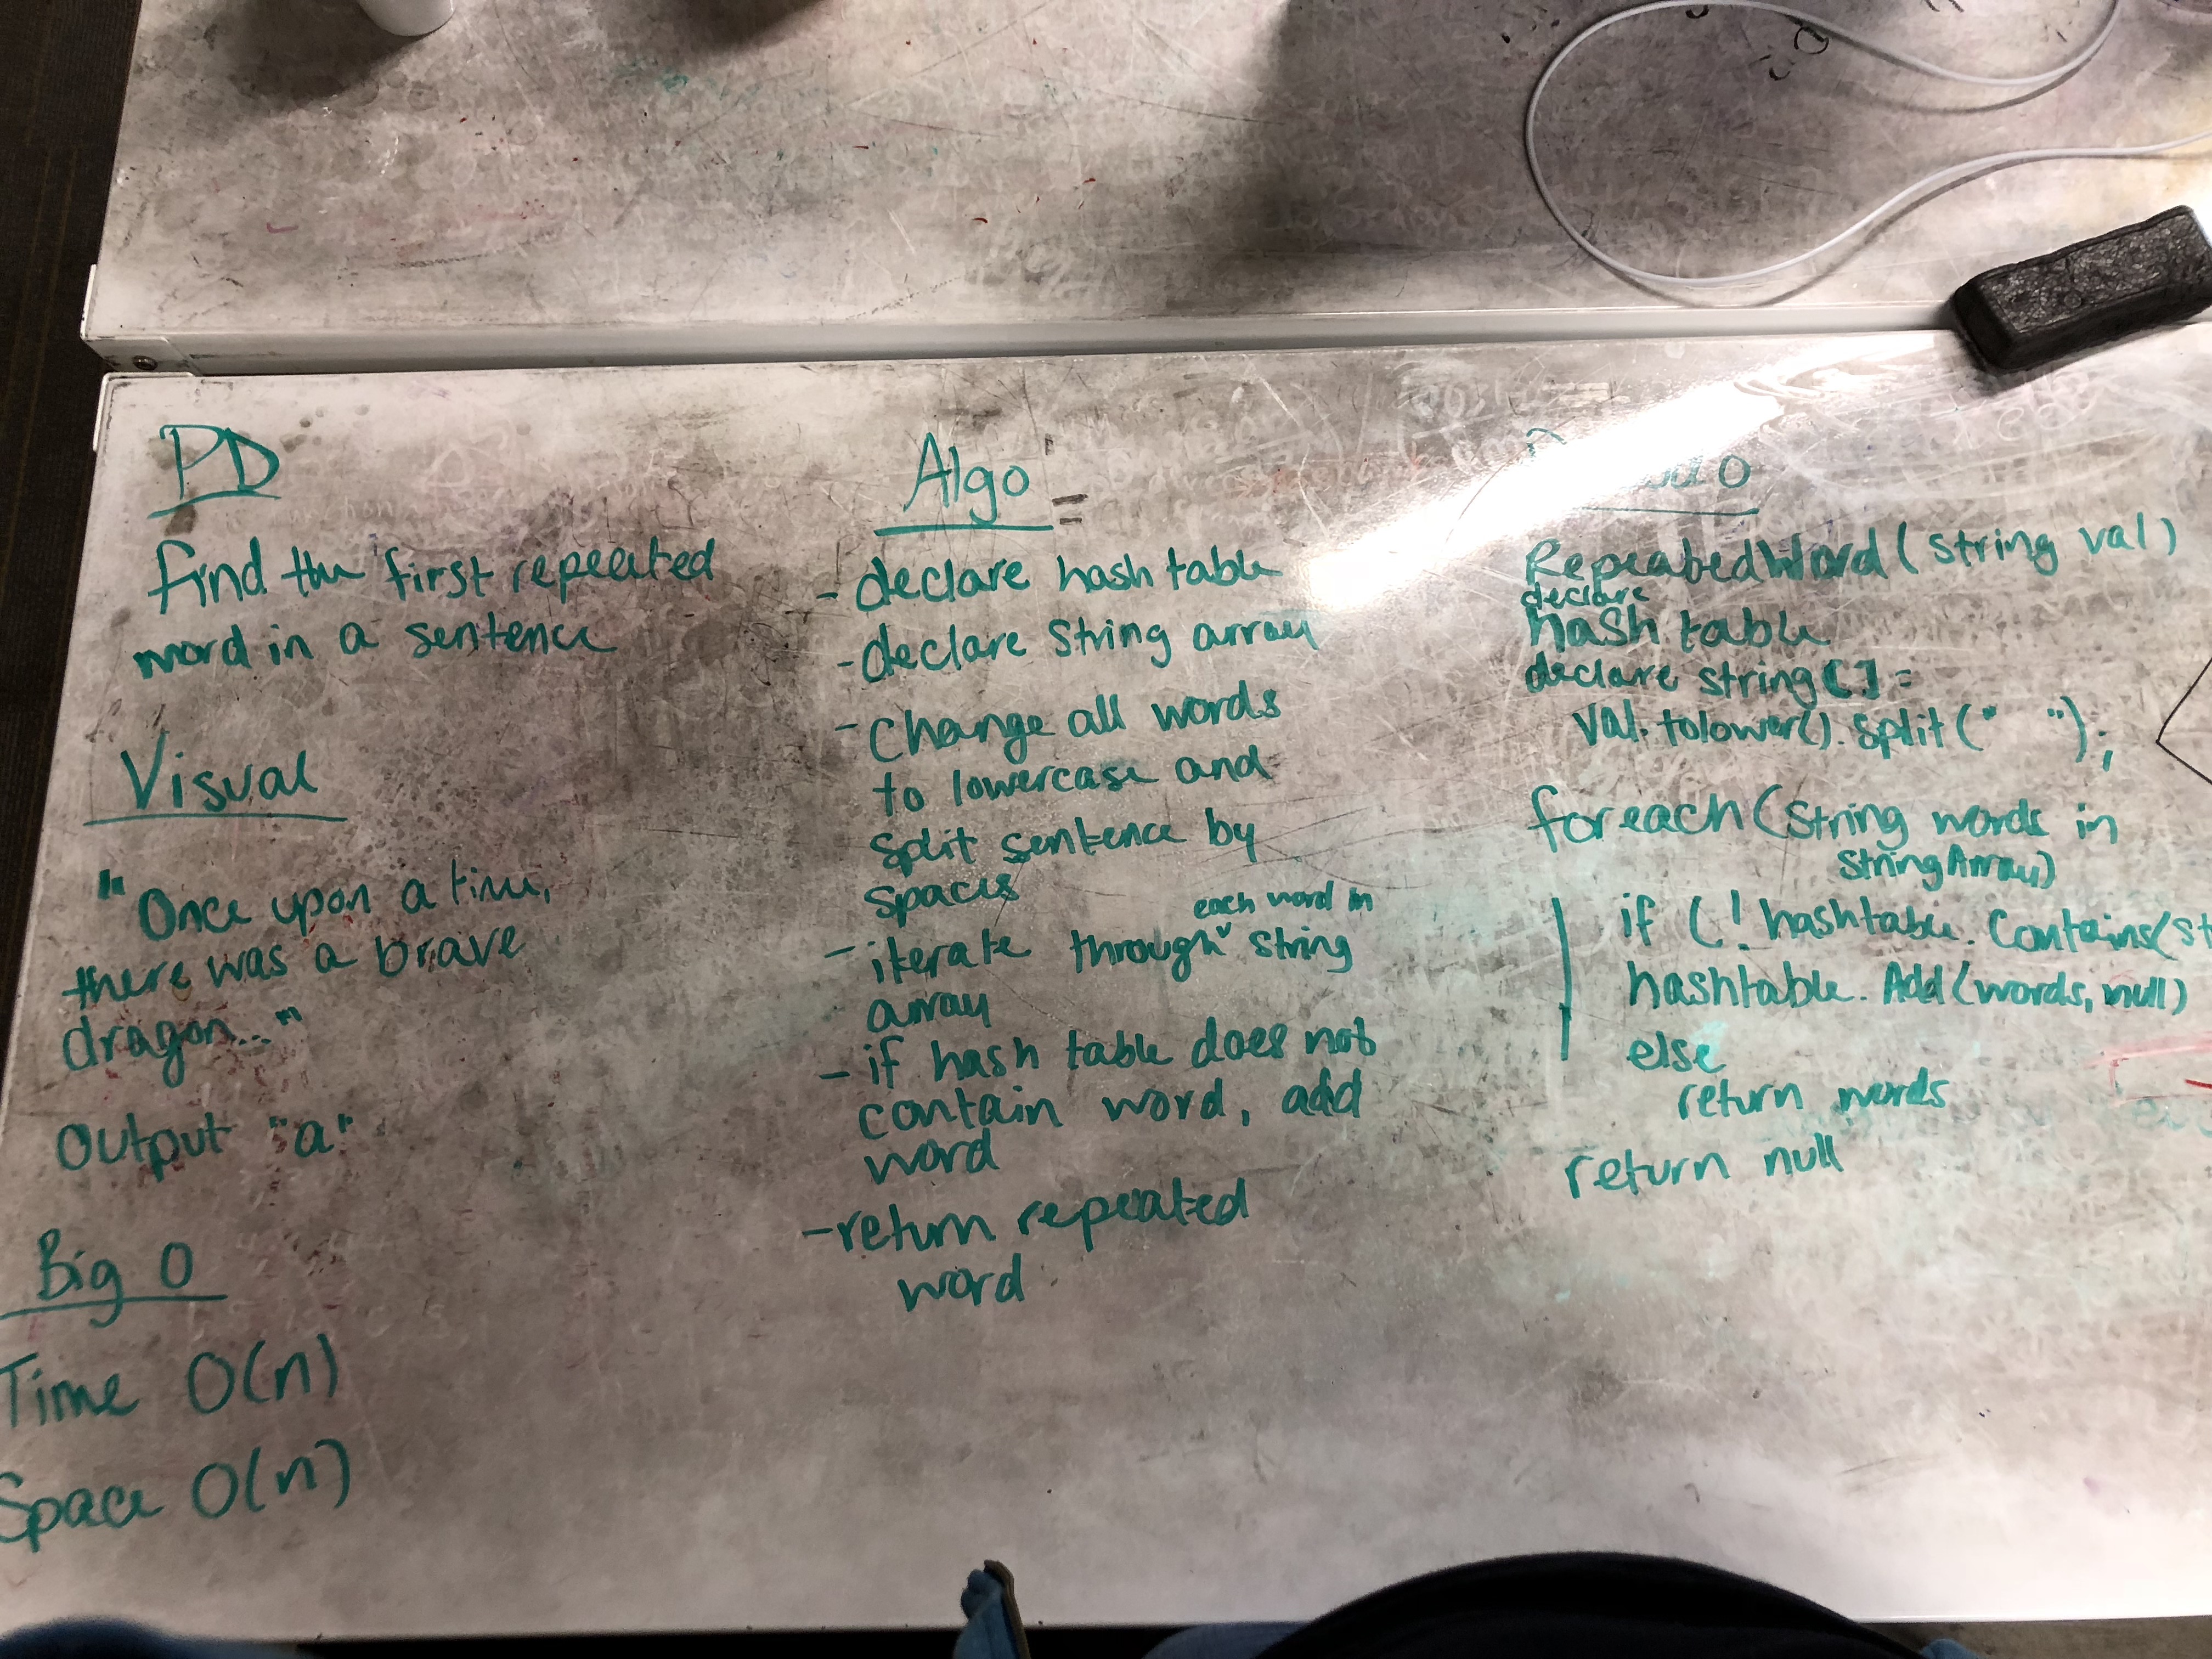 PD
find the first repeated
word in a sentence
Visual
"Once upon a time,
there was a brave
dragon..."
Output "a"
Big O
Time O(n)
Space O(n)
Algo
- declare hash table
- declare string array
- change all words
to lowercase and
split sentence by
spaces
each word in
- iterate through string
array
- if hash table does not
contain word, add
word
- return repeated
word
RepeatedWord(string val)
declare
hash table
declare string[] =
val.tolower().split(" ");
foreach(string words in
StringArray)
if (! hashtable.Contains(st
hashtable.Add(words, null)
else
return words
return null